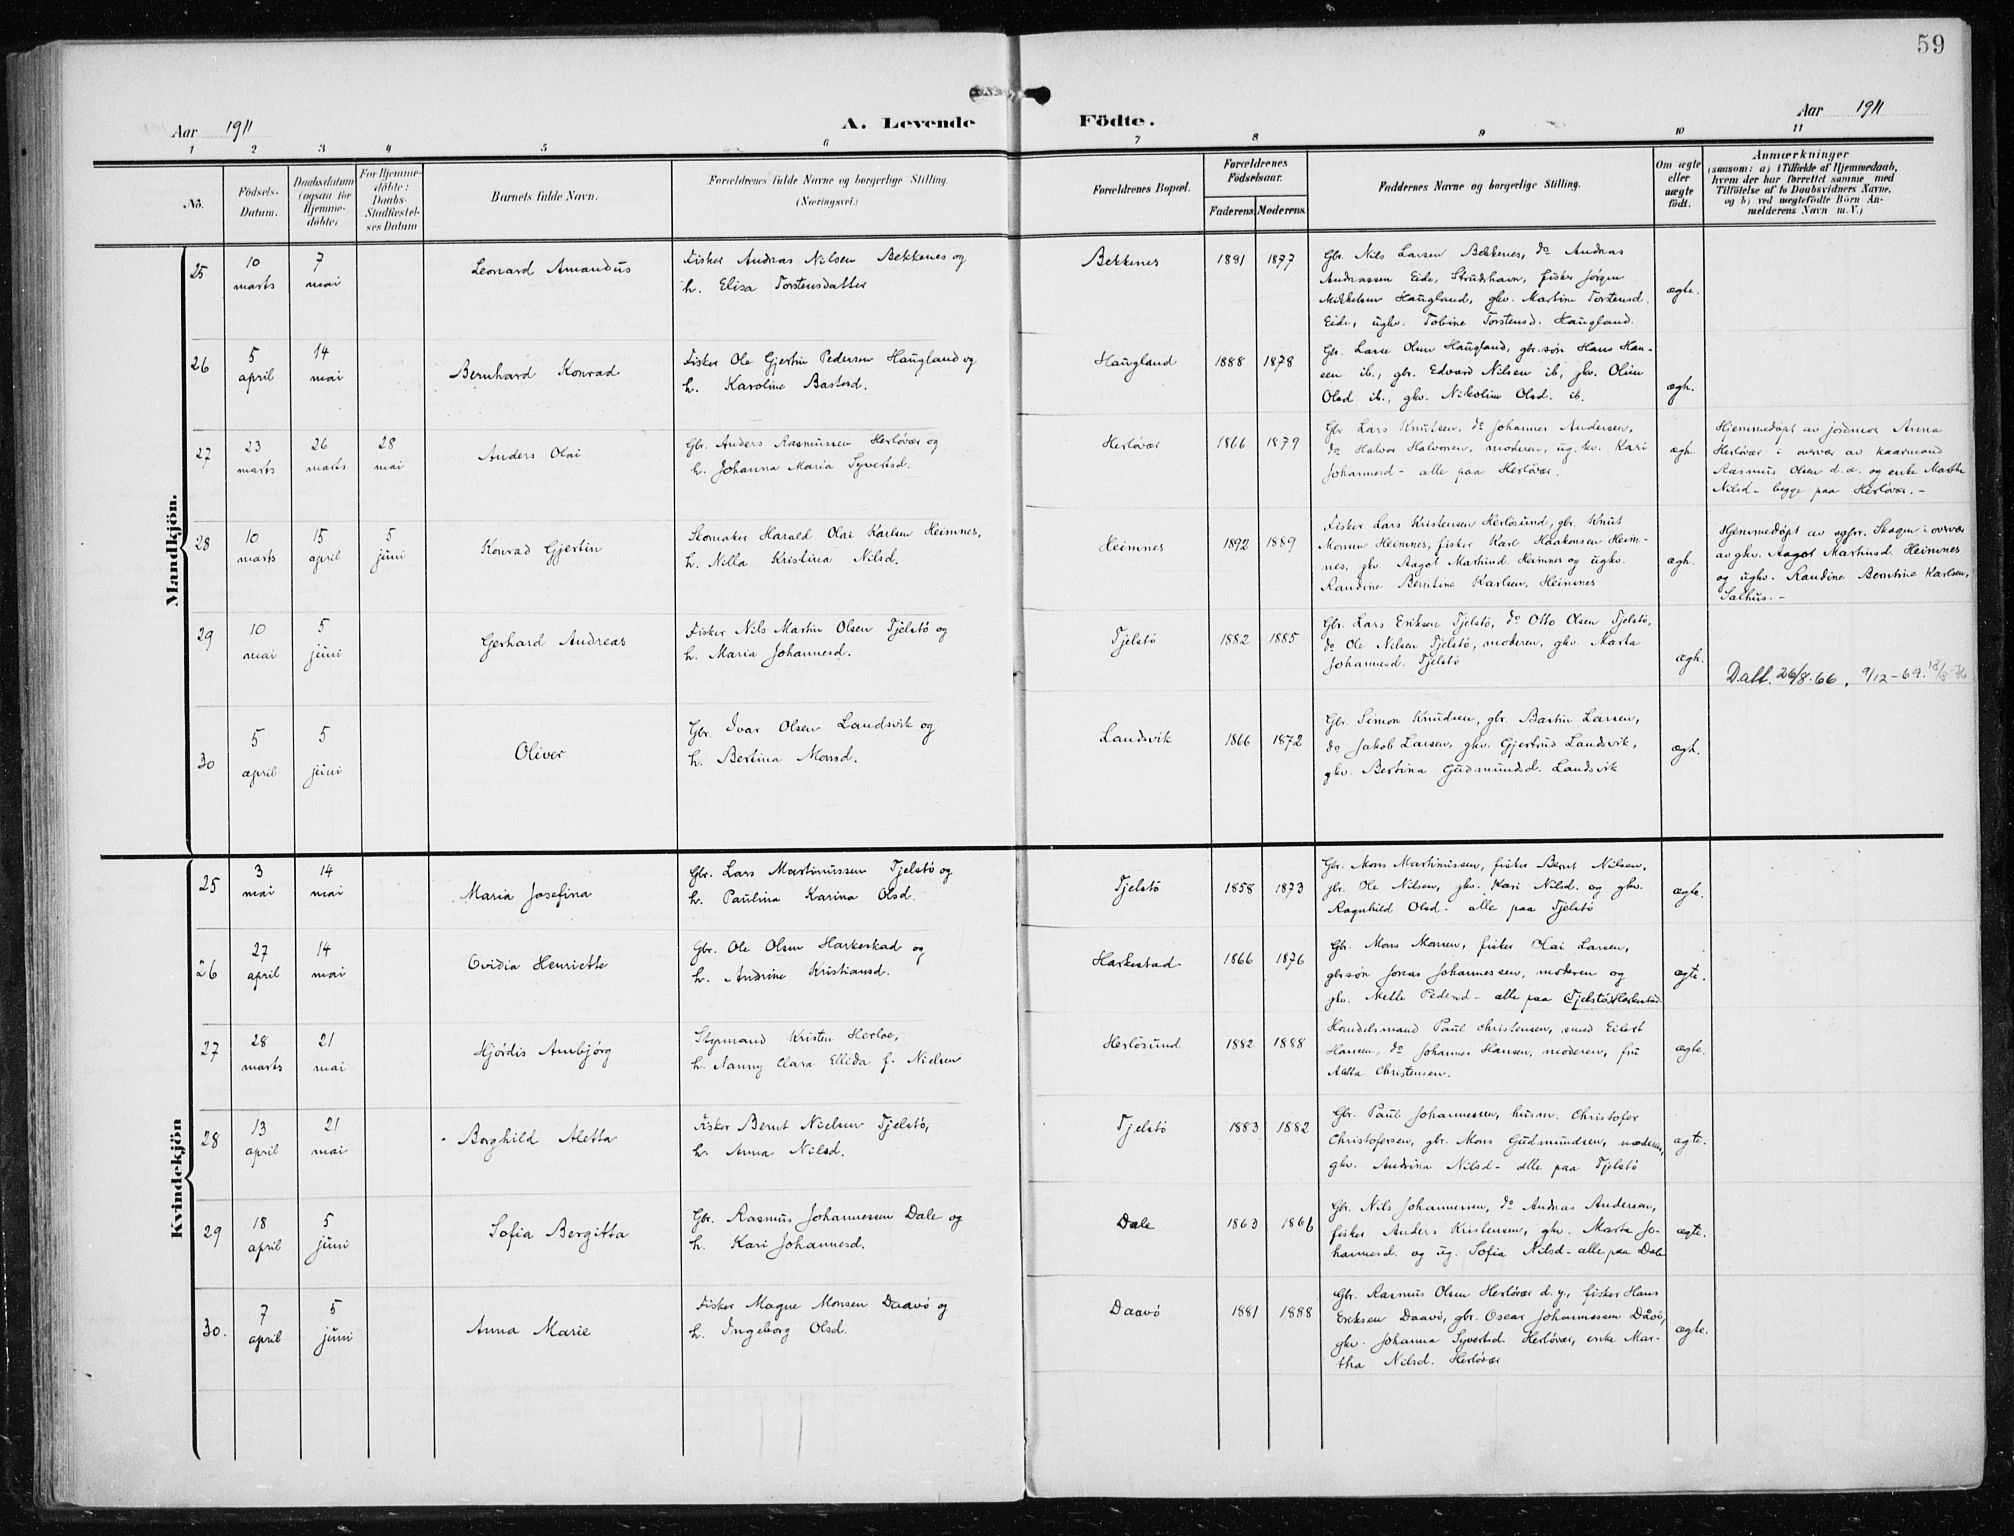 59
Aar 1911
A. Levende Födte.
Aar 1911
1 2 3 4 5 6 7 8 9 10 11
No.
Födsels-
Datum.
Daabsdatum
(ogsaa for
Hjemme-
döbte)
For Hjemme-
döbte:
Daabs-
Stadfæstel-
ses Datum
Barnets fulde Navn.
Forældrenes fulde Navne og borgerlige Stilling.
(Næringsvei.)
Forældrenes Bopæl.
Forældrenes
Födselsaar.
Faderens Moderens.
Faddernes Navne og borgerlige Stilling.
Om ægte
eller
uægte
födt.
Anmærkninger
(saasom: a) i Tilfælde af Hjemmedaab,
hvem der har forrettet samme med
Tilföielse af to Daabsvidners Navne,
og b) ved uægtefödte Börn An-
melderens Navn m. V.)
Mandkjön.
25
10
marts
7
mai
Leonard Amandus
Fisker Andreas Nilsen Bekkenes og
h. Elisa Torstensdatter
Bekkenes
1881 1877
Gbr. Nils Larsen Bekkenes, do Andreas
Andreassen Eide, Strudshavn, fisker Jørgen
Mikkelsen Haugland, gkv. Martine Torstensd.
Eide, ugkv. Tobine Torstensd. Haugland.
ægte.
26
5
april
14
mai
Bernhard Konrad
Fisker Ole Gjertin Pedersen Haugland og
h. Karoline Bastesd.
Haugland
1888 1878
Gbr. Lasse Olsen Haugland, gbr.søn Hans Han-
sen ib., gbr. Edvard Nilsen ib, gkv. Oline
Olsd ib., gkv. Nikoline Olsd. ib.
ægt.
27
23
marts
26
marts
28
mai
Anders Olai
Gbr. Anders Rasmussen Herløvær og
h. Johanna Maria Syvertsd.
Herløvær
1866 1879
Gbr Lars Knutsen, do Johannes Andersen,
do Halvor Halvorsen, moderen, ug. kv. Kari
Johannesd - alle paa Herløvær.
ægt.
Hjemmedøpt av jordmor Anna
Herløvær i overvær av kaarmand
Rasmus Olsen d. æ. og enke Martha
Nilsd - begge paa Herløvær. -
28
10
marts
15
april
5
juni
Konrad Gjertin
Skomaker Harald Olai Karlsen Heimnes,
h. Nilla Kristina Nilsd.
Heimnes
1892 1889
Fisker Lars Kristensen Herløsund, gbr. Knut
Monsen Heimnes, fisker Karl Haakonsen Heim-
nes, gkv. Aagot Martinsd. Heimnes og ugkv.
Randine Berntine Karlsen, Heimnes
ægt.
Hjemmedøpt av sgpr. Skagen i overvær
av gkv. Aagot Martinsd. Heimnes
og ugkv. Randine Berntine Karlsen,
Salhus. -
29
10
mai
5
juni
Gerhard Andreas
Fisker Nils Martin Olsen Tjelstø og
h. Maria Johannesd.
Tjelstø
1882 1885
Gbr. Lars Eriksen Tjelstø, do Otto Olsen Tjelstø,
do Ole Nilsen Tjelstø, moderen, gkv. Marta
Johannesd. Tjelstø
ægt.
Datt. 26/8-66, 9/12-69.
30
5
april
5
juni
Oliver
Gbr. Ivar Olsen Landsvik og
h. Bertina Monsd.
Landsvik
1866 1872
Gbr. Simon Knudsen, gbr. Bastin Larsen,
do Jakob Larsen, gkv. Gjertrud Landsvik,
gkv. Bertina Gudmundsd. Landsvik
ægt.
Kvindekjön
25
3
mai
14
mai
Maria Josefina
Gbr. Lars Martinussen Tjelstø og
h. Paulina Karina Olsd.
Tjelstø
1858 1873
Gbr. Mons Martinussen, fisker Bernt Nilsen,
gbr. Ole Nilsen, gkv. Kari Nilsd. og gkv.
Ragnhild Olsd - alle paa Tjelstø
ægte.
26
27
april
14
mai
Ovidia Henriette
Gbr. Ole Olsen Harkestad og
h. Andrine Kristiansd.
Harkestad
1866 1876
Gbr. Mons Monsen, fisker Olai Larsen,
gbrsøn Jonas Johannessen, moderen og
gkv. Mette Pedersd - alle paa Tjelstø Harkestad
ægte.
27
28
marts
21
mai
Hjördis Ambjørg
Styrmand Kristen Herloe,
h. Nanny Clara Ellida f. Nielsen
Herløsund
1882 1888
Handelsmand Paul Christensen, smed Eilert
Hansen, do Johannes Hansen, moderen, fru
Aletta Christensen.
ægte.
28
13
april
21
mai
Borghild Aletta
Fisker Bernt Nielsen Tjelstø,
h. Anna Nilsd.
Tjelstø
1883 1882
Gbr. Paul Johannessen, husm. Christofer
Christofersen, gbr. Mons Gudmundsen, moderen,
gkv. Andrina Nilsd - alle paa Tjelstø
ægte.
29
18
april
5
juni
Sofia Bergitta
Gbr. Rasmus Johannessen Dale og
h. Kari Johannesd.
Dale
1863 1866
Gbr. Nils Johannessen, do Andreas Andersen,
fisker Anders Kristensen, gkv. Marta Jo-
hannesd. og ug. Sofia Nilsd - alle paa Dale
ægte.
30.
7
april
5
juni
Anna Marie
Fisker Magne Monsen Daavø og
h. Ingeborg Olsd.
Daavø
1881 1888
Gbr. Rasmus Olsen Herløvær d. y., fisker Hans
Eriksen Daavø, gbr. Oscar Johannessen Dåvø,
gkv. Johanna Syvertsd. Herløvær, enke Mar-
tha Nilsd. Herløvær
ægte.